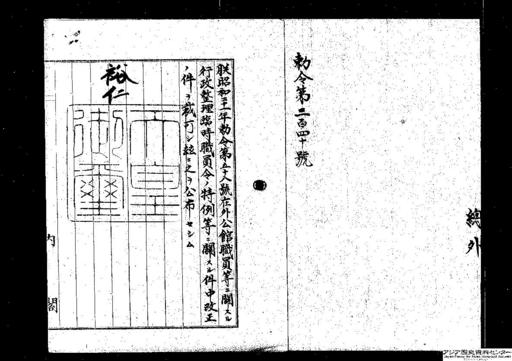 勅令第二百四十號
總外
朕昭和二十一年勅令第五十八號在外公館職員等ニ關スル
行政整理臨時職員令ノ特例等ニ關スル件中改正
ノ件ヲ裁可シ玆ニ之ヲ公布セシム
裕仁
天皇御璽
内閣
アジア歴史資料センター